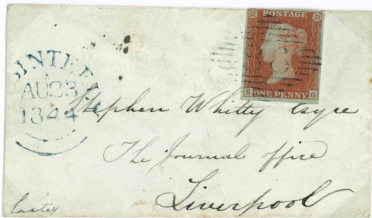 POSTAGE
ONE PENNY
AU 23
1844
Stephen Whitty Esqre
The Journal office
Liverpool